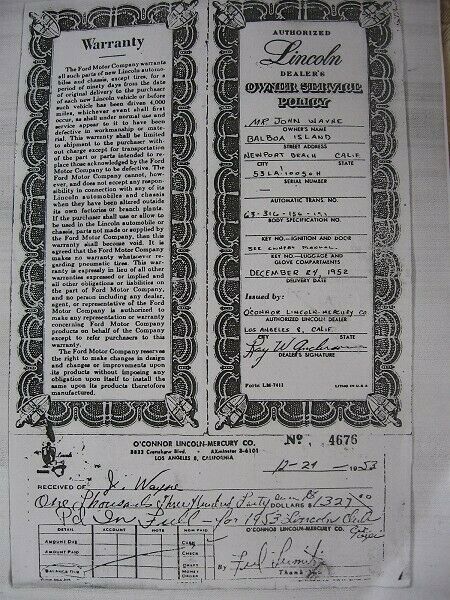 Warranty
The Ford Motor Company warrants
all such parts of new Lincoln automo-
biles and chassis, except tires, for a
period of ninety days from the date
of original delivery to the purchaser
of each new Lincoln vehicle or before
such vehicle has been driven 4,000
miles, whichever event shall first
occur, as shall under normal use and
service appear to it to have been
defective in workmanship or mate-
rial. This warranty shall be limited
to shipment to the purchaser with-
out charge except for transportation
of the part or parts intended to re-
place those acknowledged by the Ford
Motor Company to be defective. The
Ford Motor Company cannot, how-
ever, and does not accept any respon-
sibility in connection with any of its
Lincoln automobiles and chassis
when they have been altered outside
its own factories or branch plants.
If the purchaser shall use or allow to
be used in the Lincoln automobile or
chassis, parts not made or supplied by
the Ford Motor Company, then this
warranty shall become void. It is
agreed that the Ford Motor Company
makes no warranty whatsoever re-
garding pneumatic tires. This war-
ranty is expressly in lieu of all other
warranties expressed or implied and
all other obligations or liabilities on
the part of Ford Motor Company,
and no person including any dealer,
agent, or representative of the Ford
Motor Company is authorized to
make any representation or warranty
concerning Ford Motor Company
products on behalf of the Company
except to refer purchasers to this
warranty.
The Ford Motor Company reserves
the right to make changes in design
and changes or improvements upon
its products without imposing any
obligation upon itself to install the
same upon its products theretofore
manufactured.
AUTHORIZED
Lincoln
DEALER'S
OWNER SERVICE
POLICY
MR JOHN WAYNE
OWNER'S NAME
BALBOA ISLAND
STREET ADDRESS
NEWPORT BEACH CALIF.
CITY STATE
53LA
SERIAL NUMBER
AUTOMATIC TRANS. NO.
BODY SPECIFICATION NO.
KEY NO.—IGNITION AND DOOR
SEE OWNERS MANUAL
KEY NO.—LUGGAGE AND
GLOVE COMPARTMENTS
DECEMBER 24, 1952
DELIVERY DATE
Issued by:
O'CONNOR LINCOLN-MERCURY CO
AUTHORIZED LINCOLN DEALER
LOS ANGELES 8, CALIF.
CITY STATE
Ray W
DEALER'S SIGNATURE
Form LM-7411 LITHO IN U.S.A.
O'CONNOR LINCOLN-MERCURY CO. No. 4676
3833 Crenshaw Blvd. • AXminster 3-6101
LOS ANGELES 8, CALIFORNIA
12-24-1953
RECEIVED OF J. Wayne
One Thousands Three Hundred DOLLARS $1327.00
Pd In Full for 1953 Lincoln
O'CONNOR LINCOLN-MERCURY CO.
DETAIL ACCOUNT NOTE NON PAID
AMOUNT DUE CASH
AMOUNT PAID CHECK
BALANCE DUE DRAFT
MONEY ORDER
By Fred
Thank You